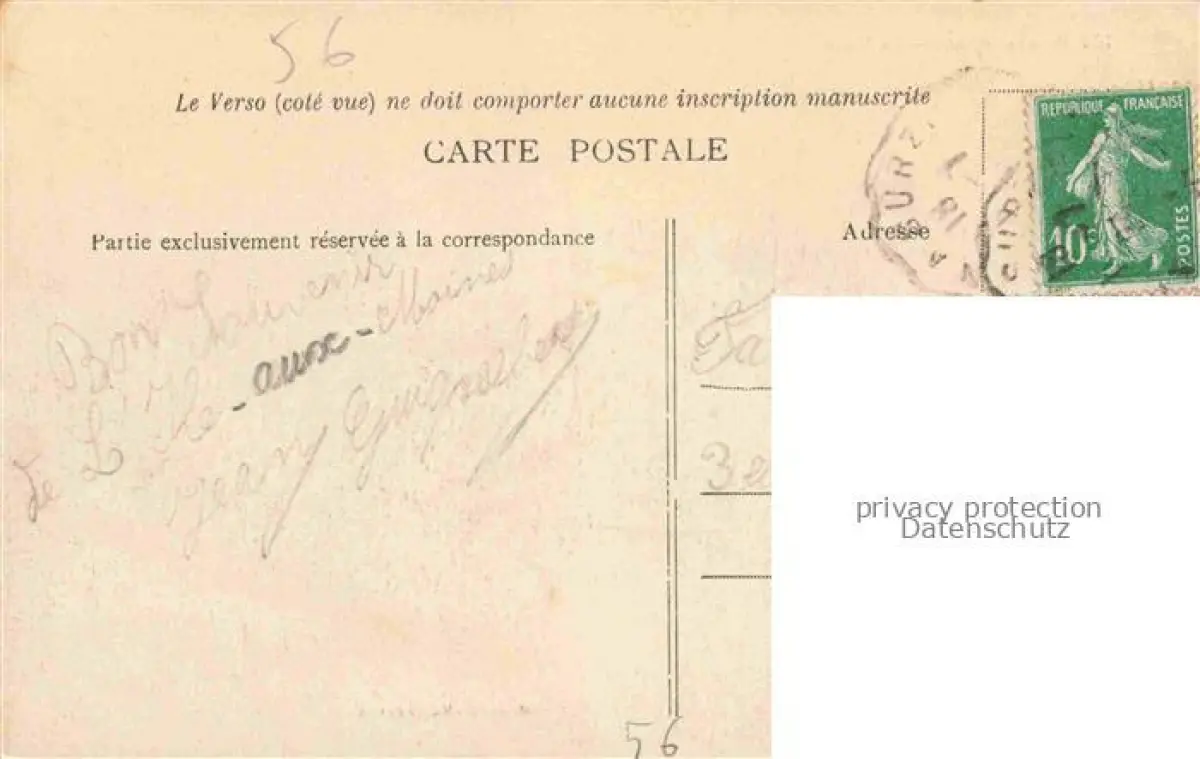 56
Le Verso (coté vue) ne doit comporter aucune inscription manuscrite
CARTE POSTALE
REPUBLIQUE FRANÇAISE
10c
POSTES
Partie exclusivement réservée à la correspondance
Adresse
Bon Souvenir
de L'Ile-aux-Moines
Jean
Fa
privacy protection
Datenschutz
56